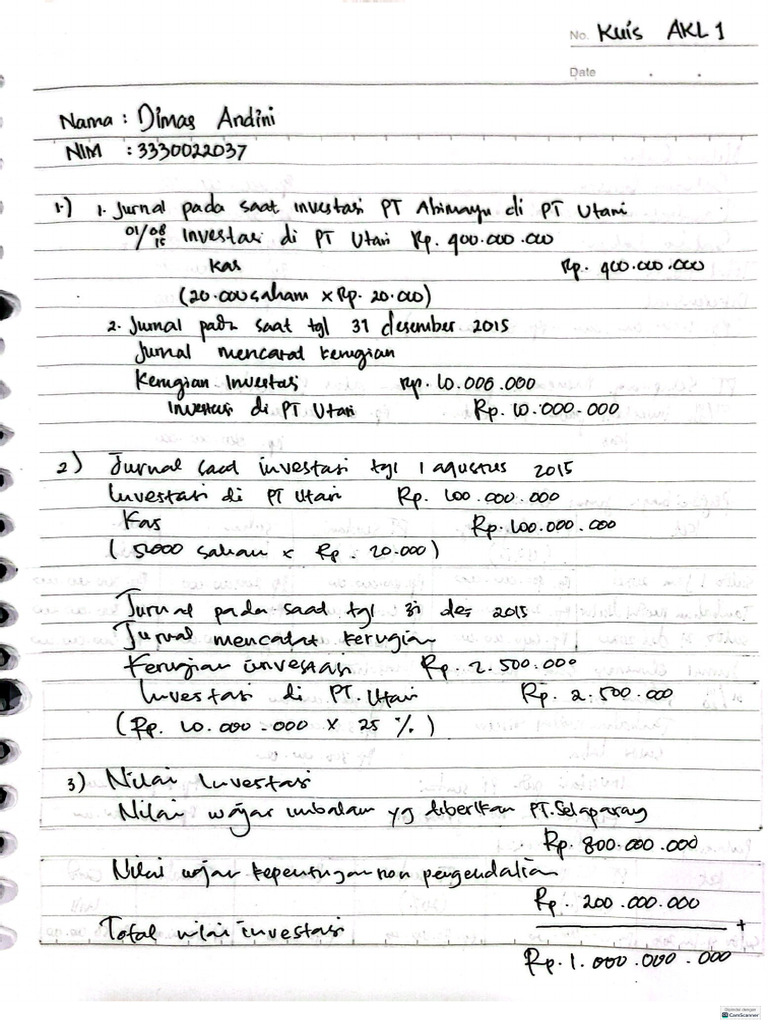 No. Kuis AKL 1
Date
Nama : Dimas Andini
NIM : 3330022037
1.) 1. Jurnal pada saat investasi PT Abimayu di PT Utari
01/08 15 Investasi di PT Utari Rp. 400.000.000
Kas Rp. 400.000.000
(20.000 saham x Rp. 20.000)
2. Jurnal pada saat tgl 31 desember 2015
Jurnal mencatat kerugian
Kerugian Investasi Rp. 10.000.000
Investasi di PT Utari Rp. 10.000.000
2) Jurnal saat investasi tgl 1 agustus 2015
Investasi di PT Utari Rp. 100.000.000
Kas Rp. 100.000.000
( 5.000 saham x Rp. 20.000 )
Jurnal pada saat tgl 31 des 2015
Jurnal mencatat kerugian
Kerugian investasi Rp. 2.500.000
Investasi di PT. Utari Rp. 2.500.000
( Rp. 10.000.000 x 25 % )
3) Nilai Investasi
Nilai wajar imbalan yg diberikan PT. Selaparang
Rp. 800.000.000
Nilai wajar kepentingan non pengendalian
Rp. 200.000.000
Total nilai investasi +
Rp. 1.000.000.000
CamScanner